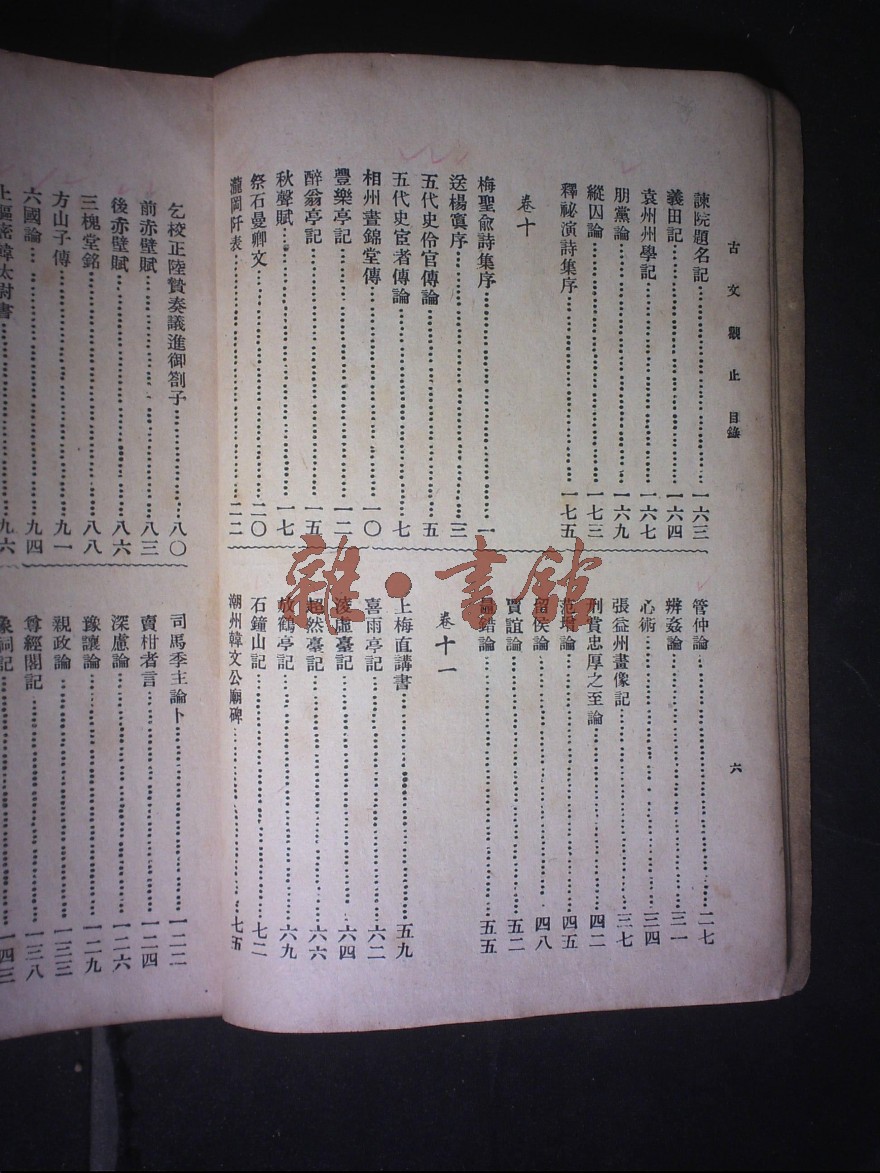 古文觀止 目錄
六
諫院題名記 一六三
義田記 一六四
袁州州學記 一六七
朋黨論 一六九
縱囚論 一七三
釋祕演詩集序 一七五
卷十
梅聖俞詩集序 一
送楊寘序 三
五代史伶官傳論 五
五代史宦者傳論 七
相州晝錦堂傳 一〇
豐樂亭記 一二
醉翁亭記 一五
秋聲賦 一七
祭石曼卿文 二〇
瀧岡阡表 二二
管仲論 二七
辨姦論 三一
心術 三四
張益州畫像記 三七
刑賞忠厚之至論 四二
范增論 四五
留侯論 四八
賈誼論 五二
鼂錯論 五五
卷十一
上梅直講書 五九
喜雨亭記 六二
凌虛臺記 六四
超然臺記 六六
放鶴亭記 六九
石鐘山記 七二
潮州韓文公廟碑 七五
乞校正陸贄奏議進御劄子 八〇
前赤壁賦 八三
後赤壁賦 八六
三槐堂銘 八八
方山子傳 九一
六國論 九四
上樞密韓太尉書 九六
司馬季主論卜 一二二
賣柑者言 一二四
深慮論 一二六
豫讓論 一二九
親政論 一三三
尊經閣記 一三八
象祠記 一四三
雜·書館